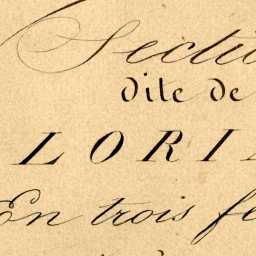 Secti
dite de
LORI
En trois fe